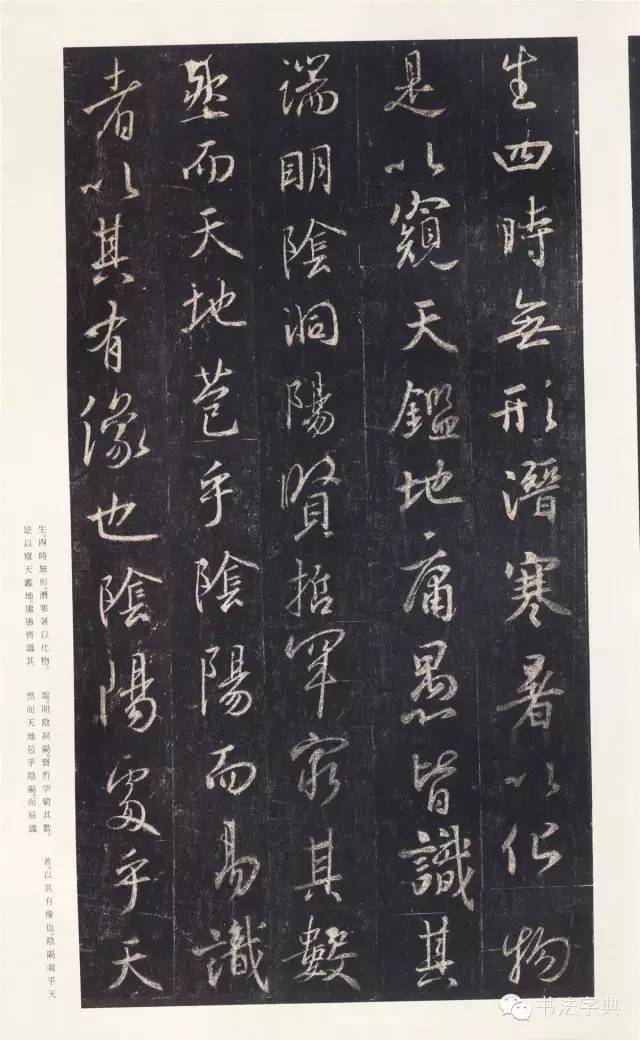 生四時無形潛寒暑以化物
是以窺天鑑地庸愚皆識其
端明陰洞陽賢哲罕窮其數
然而天地苞乎陰陽而易識
者以其有像也陰陽處乎天
生。四時無形，潛寒暑以化物。
是以窺天鑑地，庸愚皆識其
端。明陰洞陽，賢哲罕窮其數。
然而天地苞乎陰陽，而易識
者，以其有像也。陰陽處乎天
书法字典